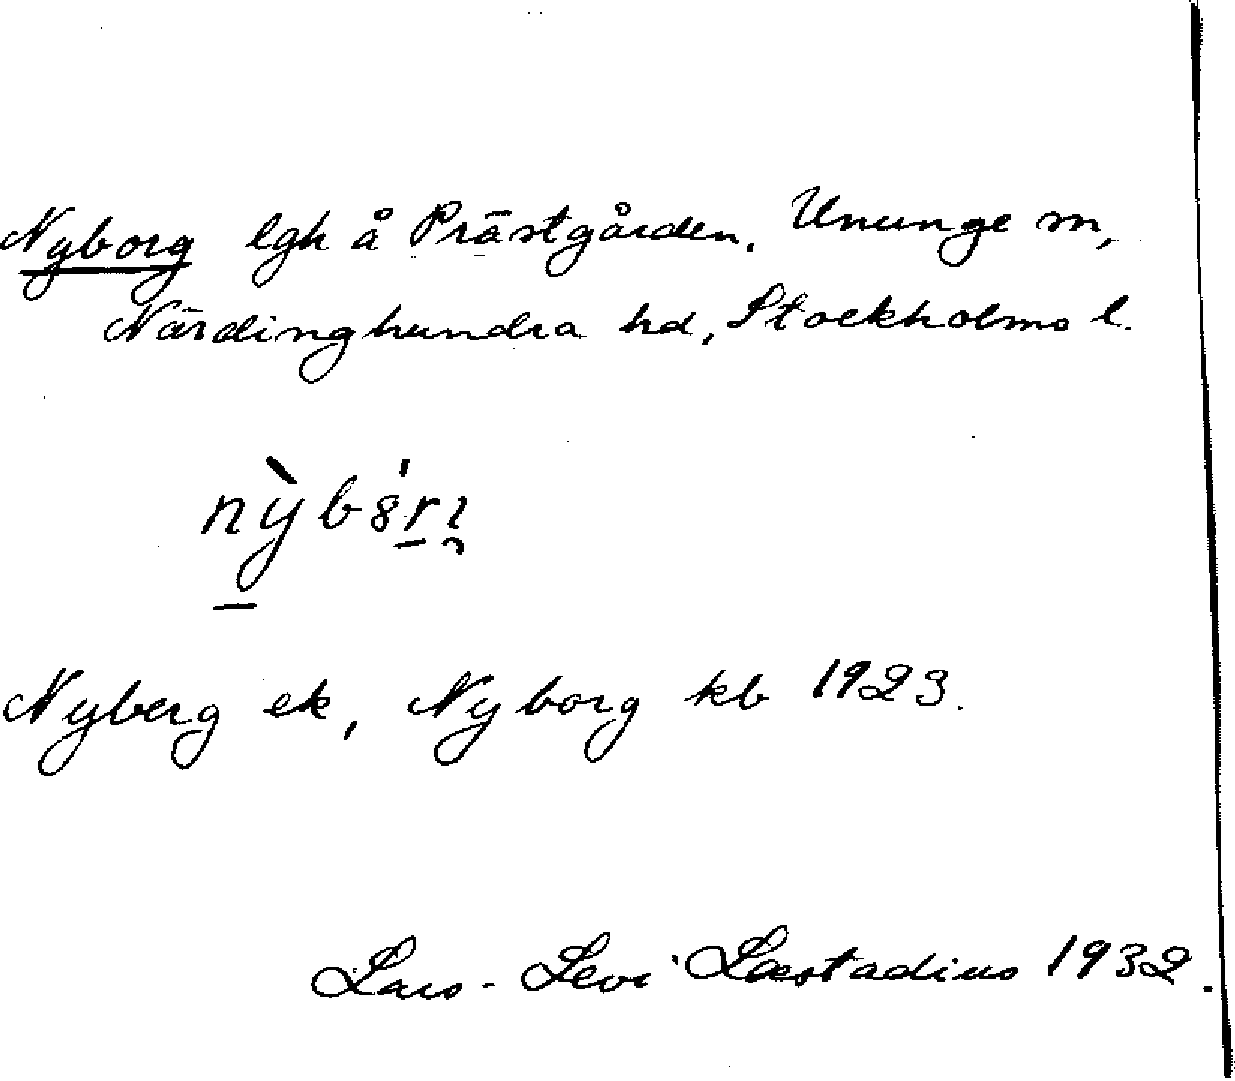 Nyborg lgh å Prästgården, Ununge sn,
Närdinghundra hd, Stockholms l.
Nyberg ek, Nyborg kb 1923.
Lars-Levi Læstadius 1932.